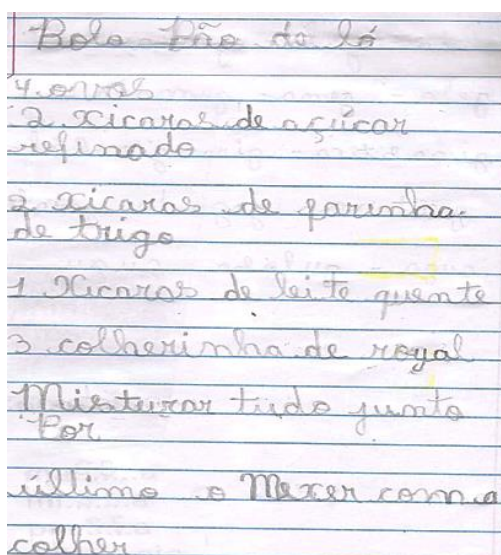 Bolo Pão do ló
4 ovos
2 xicaras de açúcar
refinado
2 xicaras de farinha
de trigo
1 Xicaras de leite quente
3 colherinha de royal
Misturar tudo junto
Por
último o Mexer com a
colher